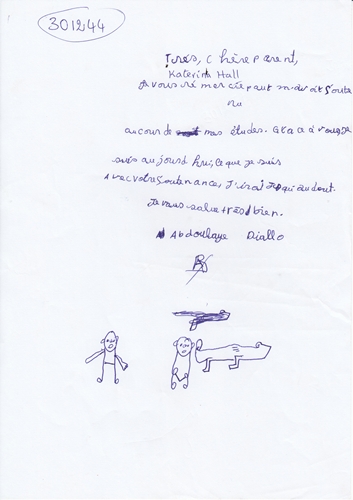 301244
Trés, Chère parent,
Katerina Hall
Je vous ré mercie pour m'avoit soute
nu
au cours de mes études. Grace à vous Je
suis aujourd hui, ce que je suis
Avec votre Soutenance, J'irai Jusqu'au bout.
Je vous salue trés bien.
Abdoulaye Diallo